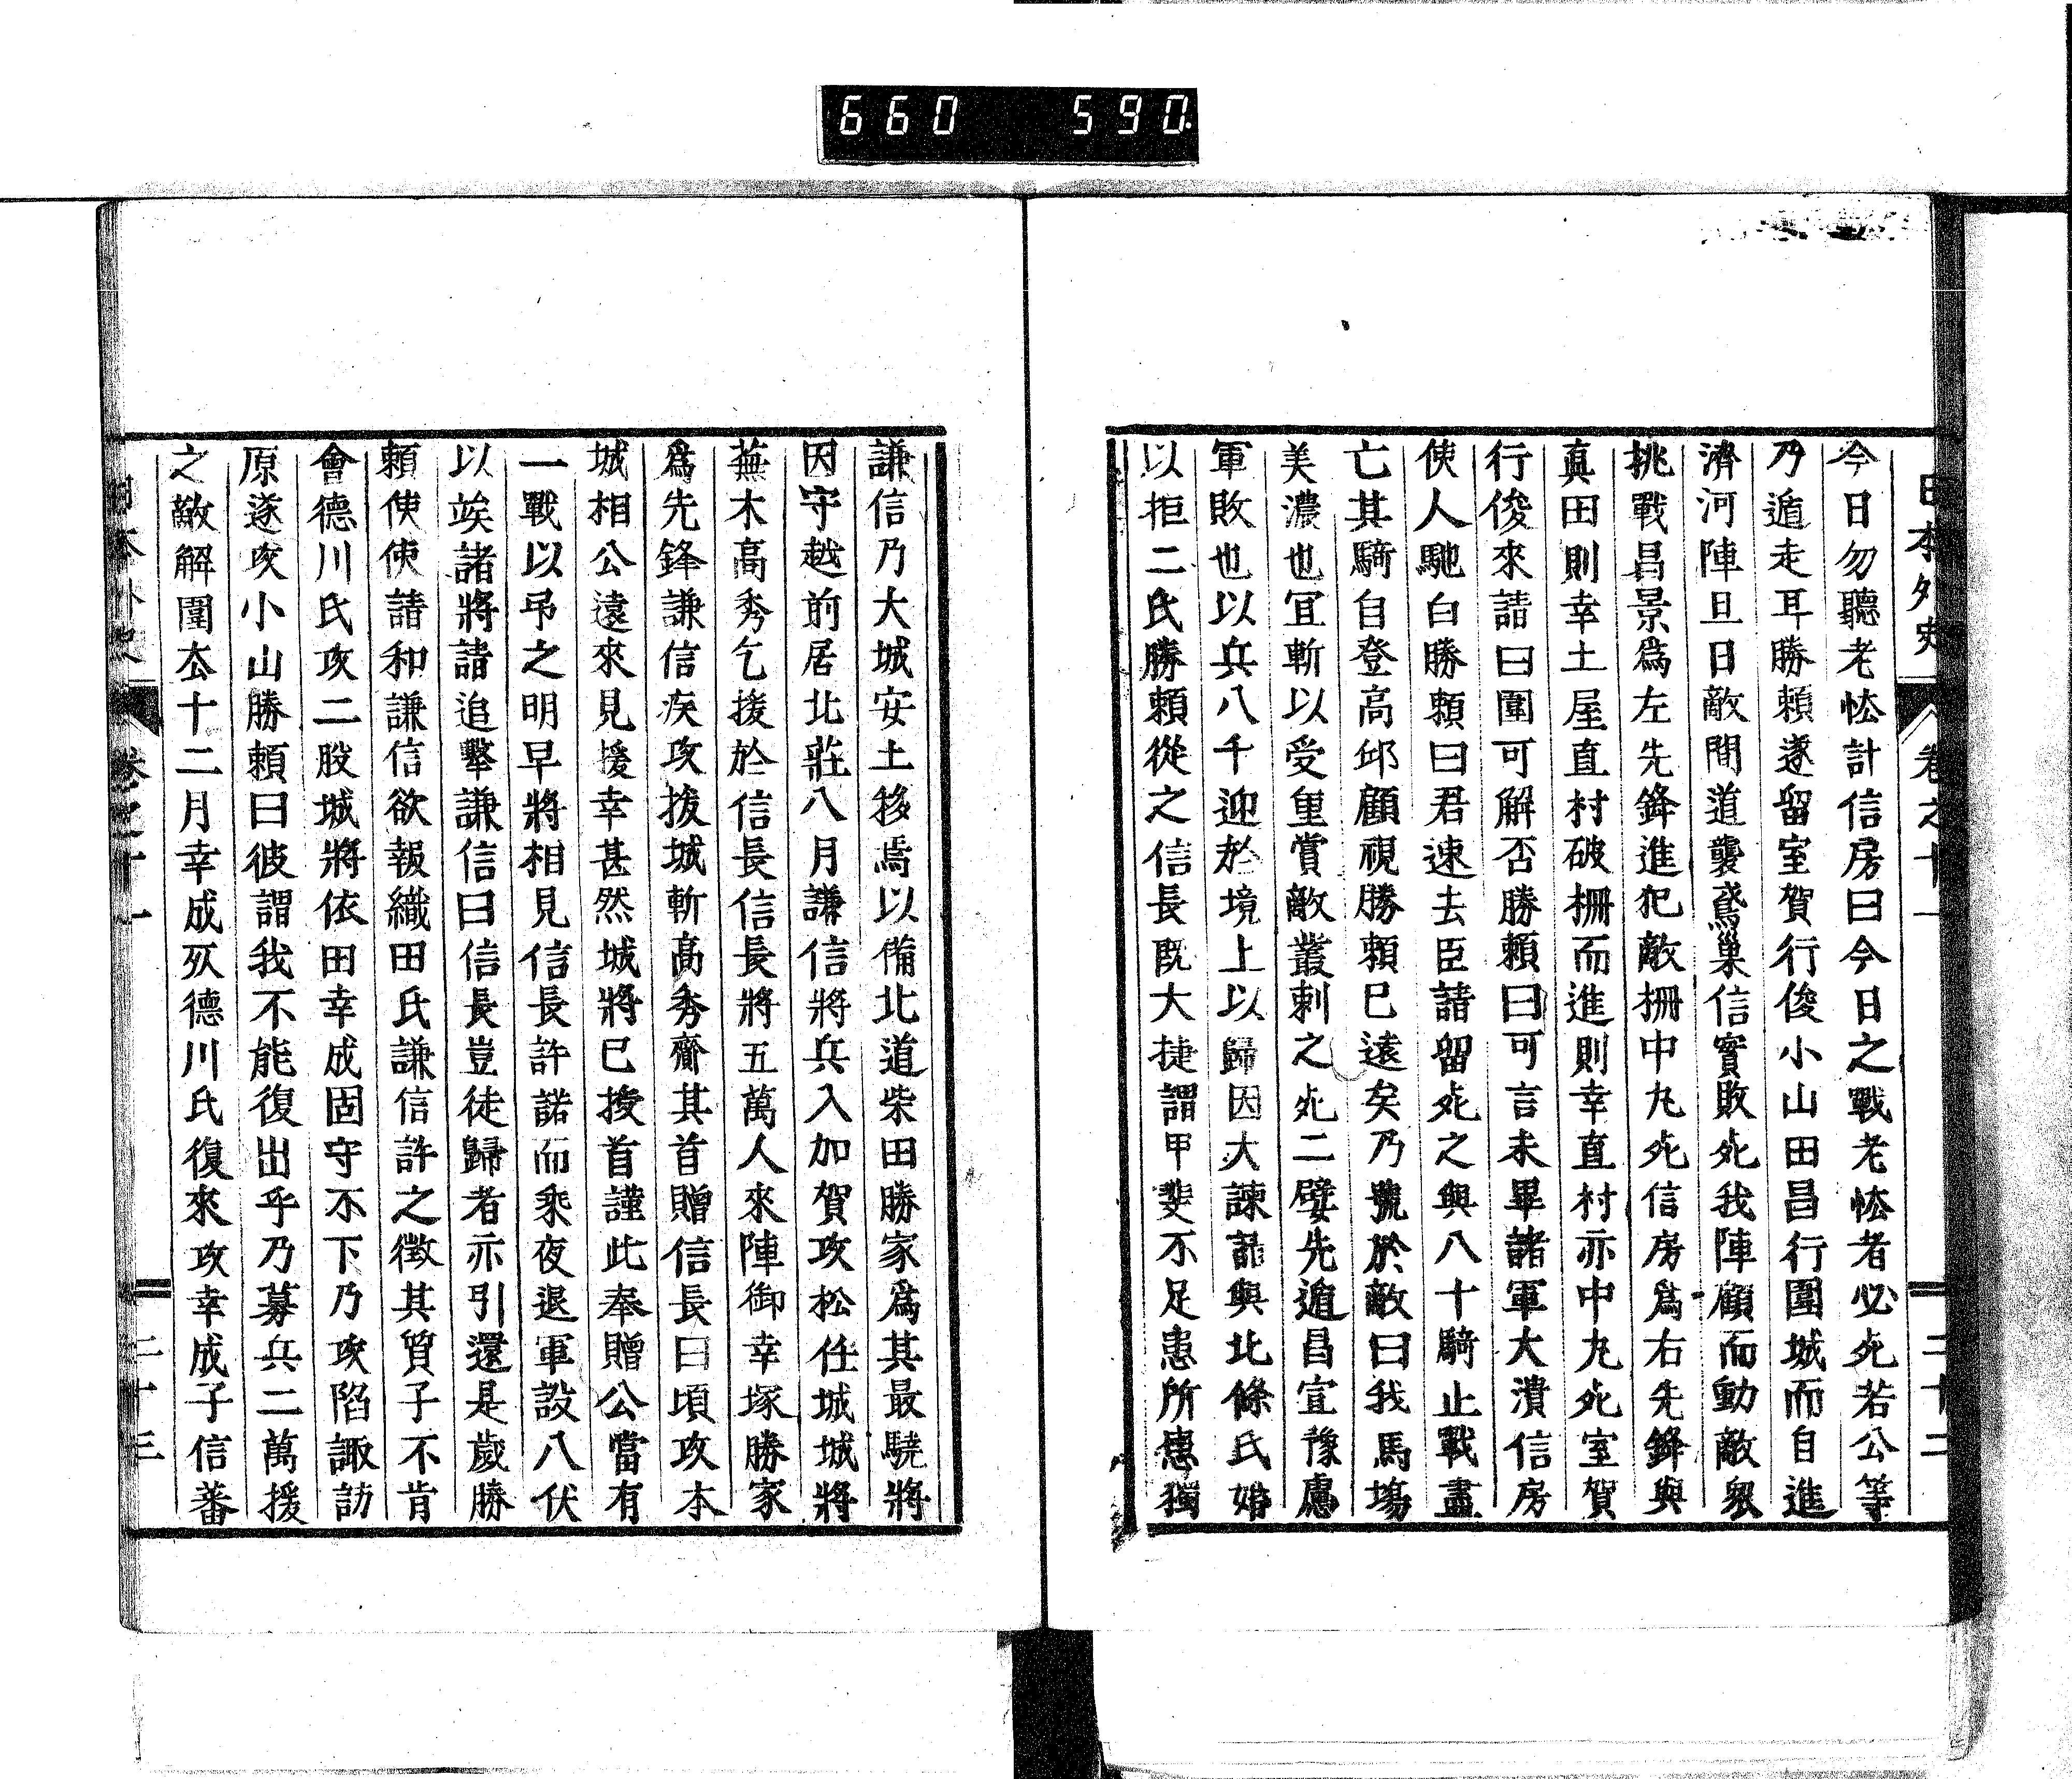 660 590
日本外史 卷之十一 二十二
今日勿聽老怯計信房曰今日之戰老怯者必死若公等
乃遁走耳勝賴遂留室賀行俊小山田昌行圍城而自進
濟河陣旦日敵間道襲鳶巢信實敗死我陣顧而動敵衆
挑戰昌景爲左先鋒進犯敵柵中丸死信房爲右先鋒與
眞田則幸土屋直村破柵而進則幸直村亦中丸死室賀
行俊來請曰圍可解否勝賴曰可言未畢諸軍大潰信房
使人馳白勝賴曰君速去臣請留死之與八十騎止戰盡
亡其騎自登高邱顧視勝賴已遠矣乃號於敵曰我馬場
美濃也宜斬以受重賞敵叢刺之死二嬖先遁昌宣豫慮
軍敗也以兵八千迎於境上以歸因大諫請與北條氏婚
以拒二氏勝賴從之信長既大捷謂甲斐不足患所患獨
謙信乃大城安土移焉以備北道柴田勝家爲其最驍將
因守越前居北莊八月謙信將兵入加賀攻松任城城將
蕪木高秀乞援於信長信長將五萬人來陣御幸塚勝家
爲先鋒謙信疾攻拔城斬高秀齎其首贈信長曰頃攻本
城相公遠來見援幸甚然城將已授首謹此奉贈公當有
一戰以吊之明早將相見信長許諾而乘夜退軍設八伏
以竢諸將請追擊謙信曰信長豈徒歸者亦引還是歲勝
賴使使請和謙信欲報織田氏謙信許之徵其質子不肯
會德川氏攻二股城將依田幸成固守不下乃攻陷諏訪
原遂攻小山勝賴曰彼謂我不能復出乎乃募兵二萬援
之敵解圍去十二月幸成歿德川氏復來攻幸成子信蕃
日本外史 卷之十一 二十三